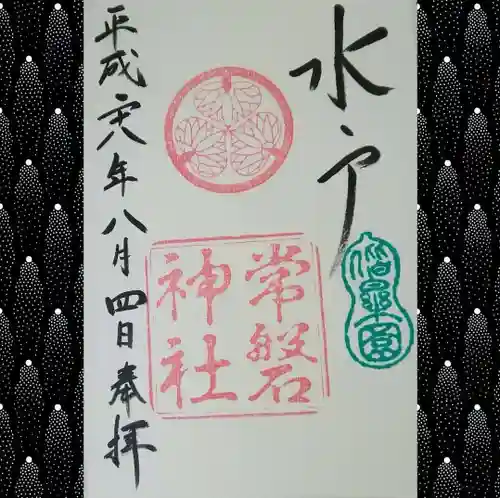 水戸
偕楽園
常磐
神社
平成二十八年八月四日奉拝